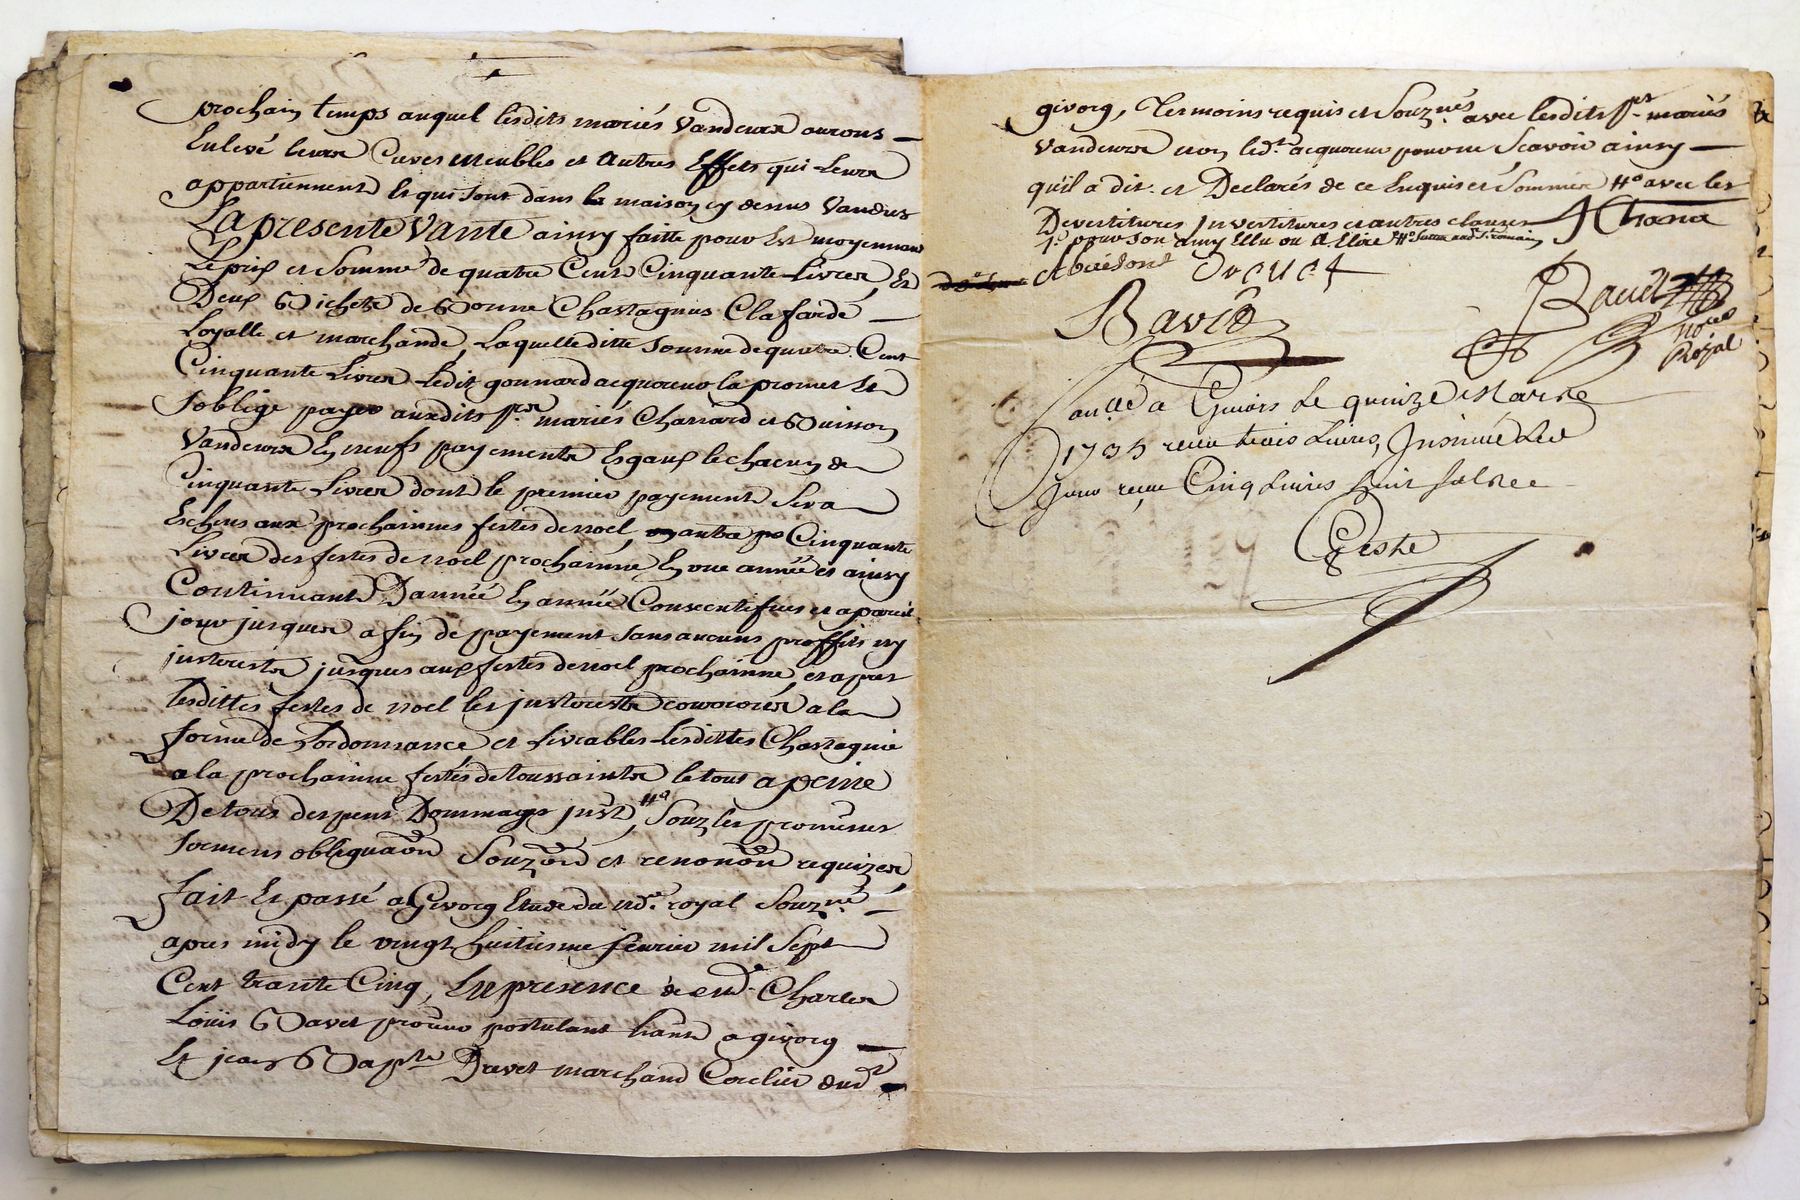 prochain temps auquel lesdits mariés Vandeurs auront
Enlevé leurs Cuves meubles et Autres Effets qui Leurs
appartiennent Et qui sont dans la maison cy dessus Vandue
La presente Vante ainsy faitte pour Et moyennant
Le prix et Somme de quatre Cent Cinquante Livres, Et
Deux Bichets de Bonne Chastagnes Clafarde
Loyalle et marchande, Laquelle ditte Somme de quatre Cent
Cinquante Livres Ledit gonnard acquereur la promet Et
s'oblige payer auxdits mariés Charrard et Buisson
Vandeurs En neufs payements Esgaux le chacun de
Cinquante Livres dont le premier payement Sera
Escheus aux prochaines festes de noel, autre Cinquante
Livres des festes de noel prochaine En une année et ainsy
Continuant D'année En année Consecutifves et a pareil
jour jusques a fin de payement sans aucuns proffits ny
interests jusques aux festes de noel prochaine, et apres
lesdittes festes de noel les interests a la
forme de L'ordonnance et Livrables Lesdittes Chastagnes
a la prochaine festes de toussaints le tout a peine
De tous despens Dommages Sous les promesses
serments obligaôn Souzôn et renonôn requizes
fait Et passé a Givorg Etude du nore. royal Souzné.
apres midy le vingt huitiesme fevrier mil Sept
Cent trante Cinq, En presence de Charles
Louis Bavet postulant a givorg
Et jean Bapte Drevet marchand Cordier dud.
givorg, Tesmoins requis et Souznés avec lesdits mariés
Vandeurs et non led. acquereur pour ne Scavoir ainsy
qu'il a dit et Declarés de ce Enquis et Sommés avec les
Devestitures Investitures et autres clauses Chana
pour son amy Ellu ou A Elire
Drevet
Bavet
Bavet
Nore
Royal
a Givors Le quinze Mars
1735 receu trois Livres, Insinué Led
jour receu Cinq Livres huit sols
Geste